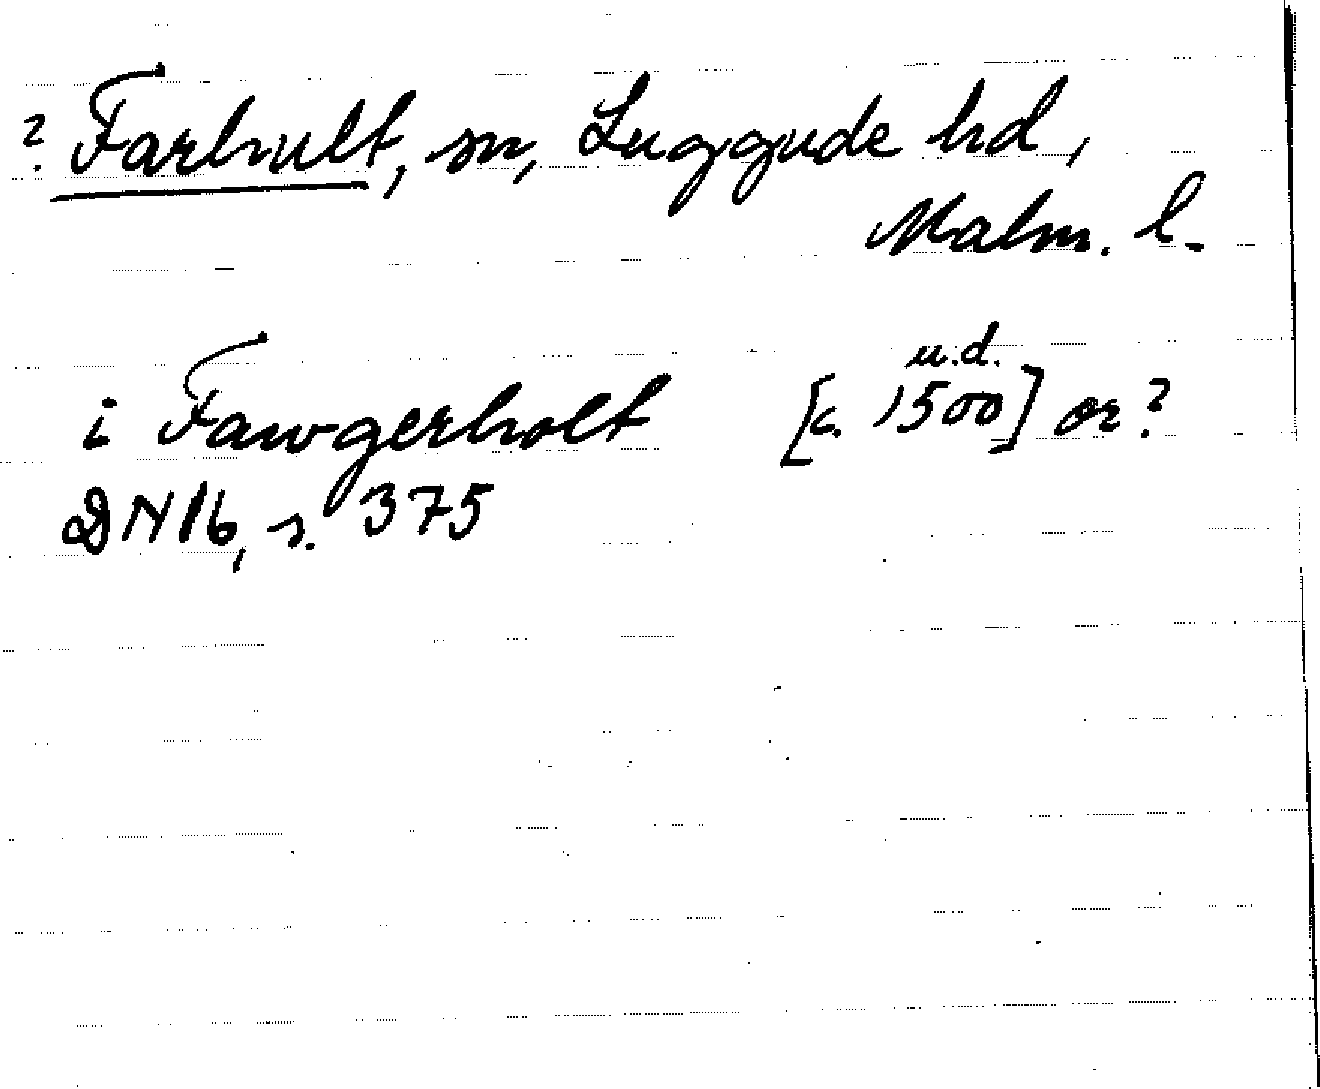 ? Farhult, sn, Luggude hd,
Malm. l.
u.d.
i Fawgerholt [c. 1500] or?
DN16, s. 375